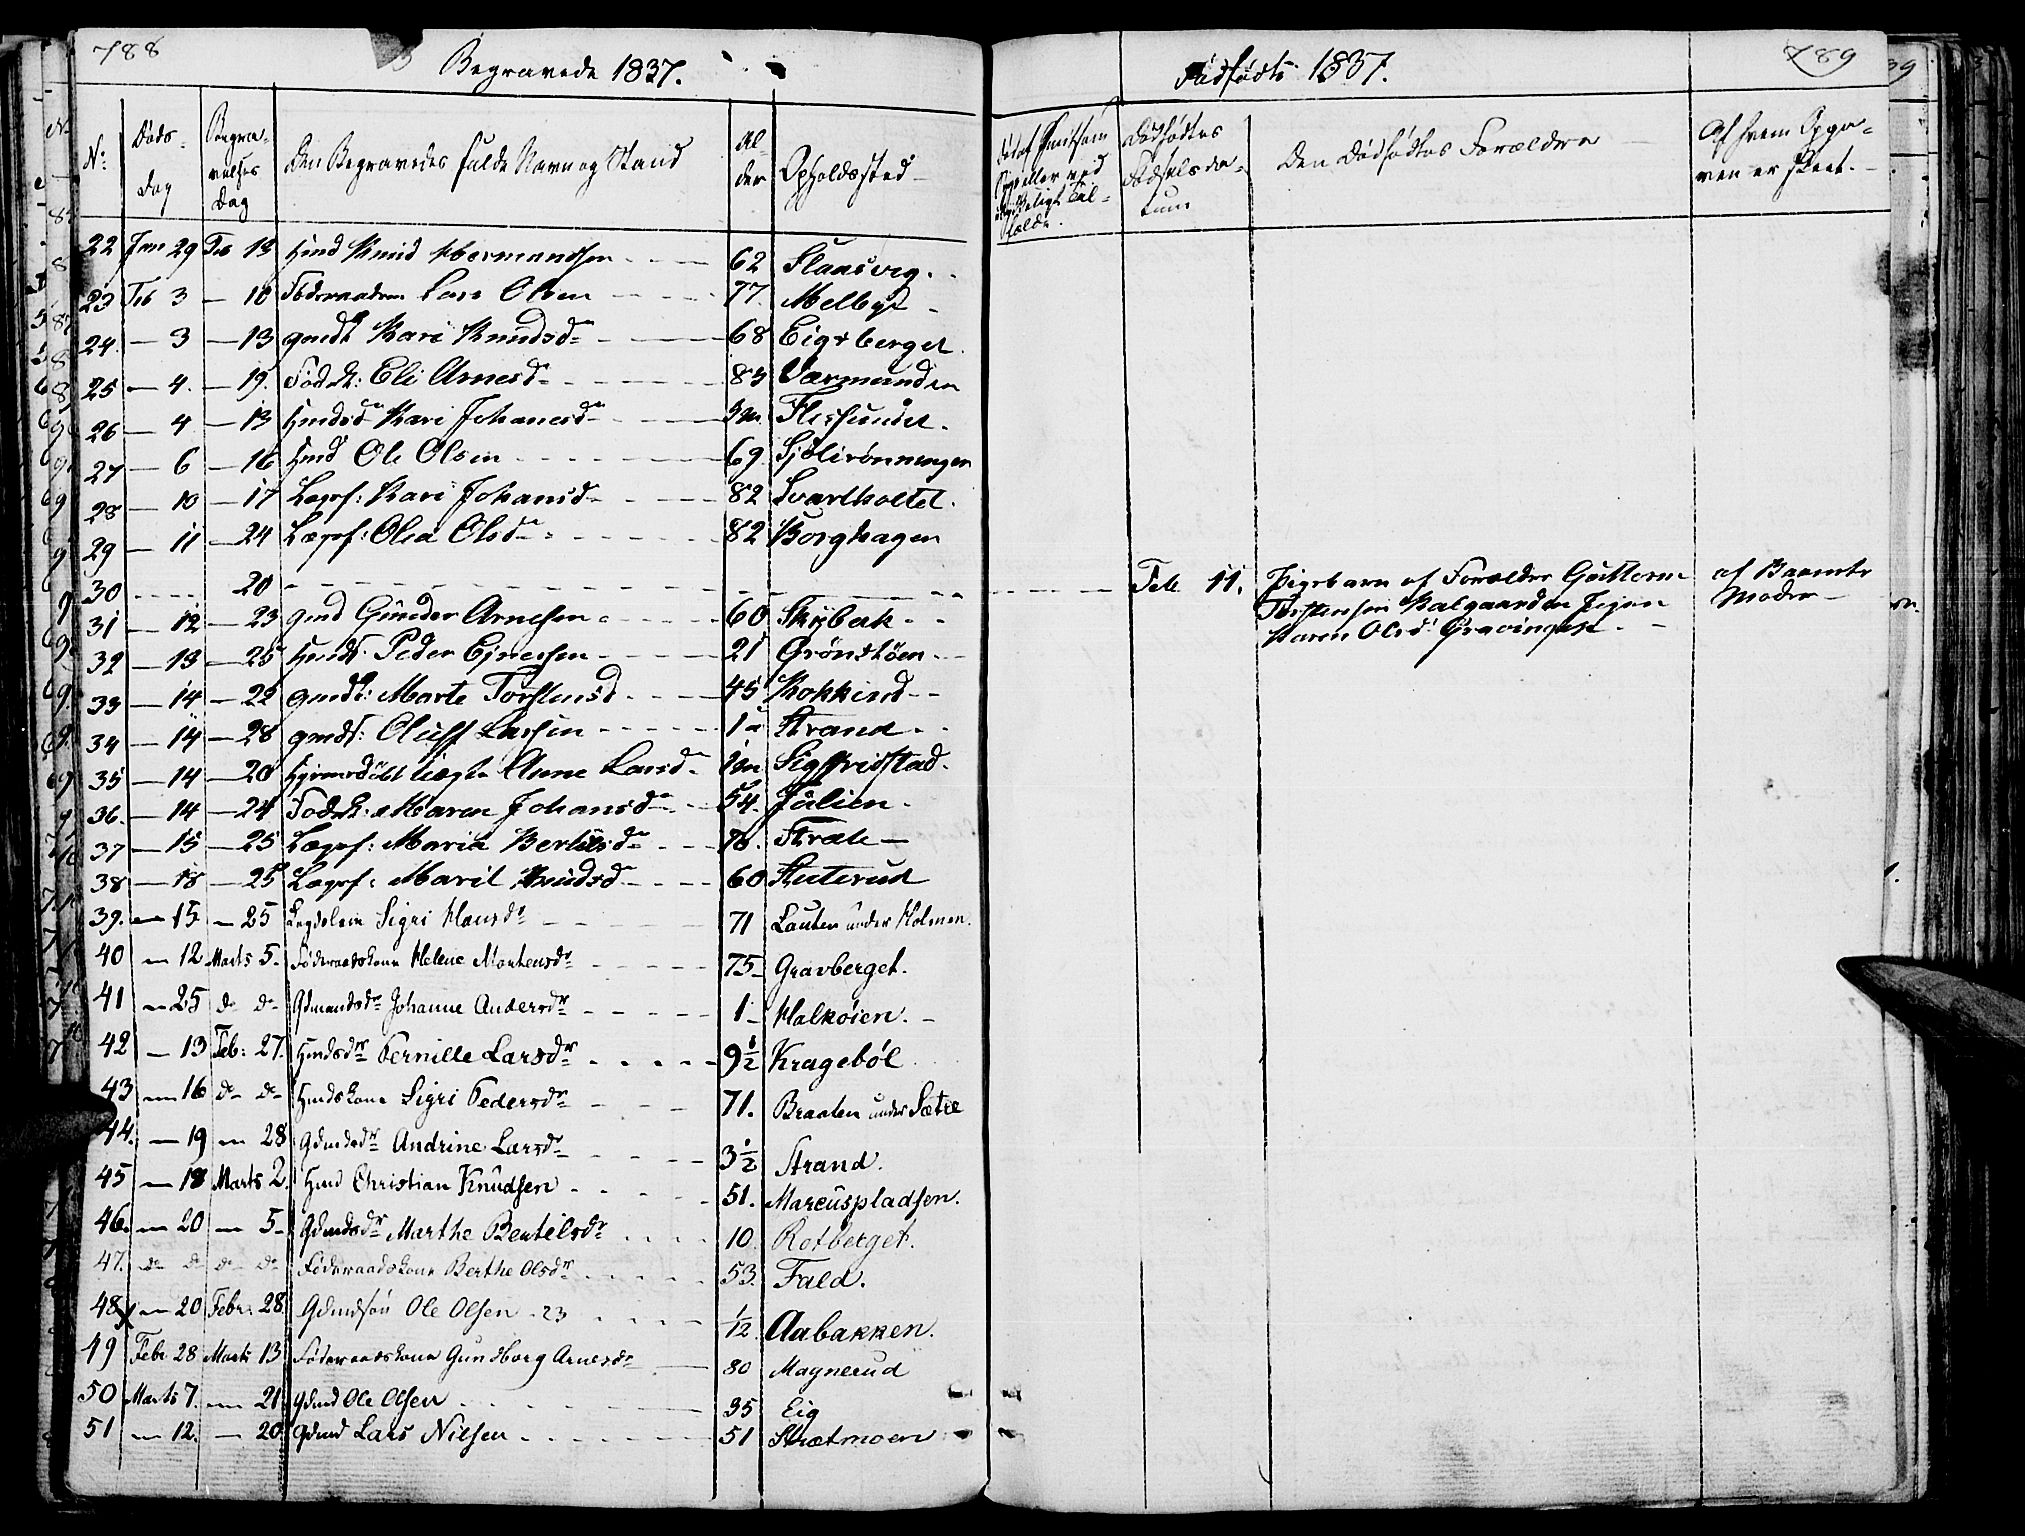 788
Begravede 1837.
Nr.
Døds-
dag
Begra-
velses
Dag
Den Begravedes fulde Navn og Stand
Al-
der
Opholdssted
22 Jan 29 Feb 13 Hmd Knud Hermandsen 62 Flaasvig.
23 Feb 3 — 10 Føderaadsm Lars Olsen 77. Melbye
24. — 3 — 13 gmdk Kari Knudsd 68 Eigsberget
25 — 4. — 19. Fødk: Eli Arnesd 85 Værmunden
26 — 4 — 13 Hmdsd Kari Johanesd 3m. Flissundet.
27 — 6 — 16 Hmd Ole Olsen 69. Sjølirønningen
28 — 10 — 17 Lægsf: Kari Johansd 82 Svartholtet.
29 — 11 — 24 Lægsf: Olea Olsd 82 Borghagen
30 20
31 — 12 — 23 gmd Gunder Arnesen 60 Skybak
32 — 13 — 25 Hmds. Peder Ejnersen 21 Grønstøen
33 — 14 — 22 gmdk: Marte Torstensd 45 Kokkind
34 — 14 — 28 gmds: Oluff Larsen 1 a Strand
35 — 14 — 20 Anne Larsd 1m Sigfridstad.
36. — 14 — 24 Fødk: Maren Johansd 54. Julien
37 — 15 — 25 Lægsf: Maria Bertelsd 78. Stræte
38 — 18 — 25 Lægsf: Marit Knudsd 60 Stuterud
39. — 15 — 25 Legdslem Sigri Hansdr 71 Lauten under Holmen.
40 — 12 Marts 5. Føderaadskone Helene Mortensdr 75 Gravberget.
41 — 25 do do Gdmandsdr Johanne Andersdr 1 Halkøien.
42 — 13 Feb: 27. Hmdsdr Pernille Larsdr 9½ Kragebøl
43 — 16 do do Hmdskone Sigri Pedersdr 71. Braaten under Sætre
44. — 19 — 28 Gdmdsdr Andrine Larsdr 3½ Strand.
45 — 18 Marts 2. Hmd Christian Knudsen 51. Marcuspladsen.
46. — 20 — 5 Gdmdsdr Marthe Bentelsdr 10. Rotberget.
47. do do do do Føderaadskone Berthe Olsdr 53. Fald.
48 — 20 Febr. 28 Gdmdsøn Ole Olsen 23 1/12 Aabakken.
49 Febr 28 Marts 13 Føderaadskone Gundborg Arnesdr 80 Magnerud
50 Marts 7. — 21 Gdmd Ole Olsen 35 Eig
51 — 12. — 20 Gdmd Lars Nilsen 51 Strætmoen
789
Dødfødte 1837.
Dødfødtes
Fødselsda-
tum
Den Dødfødtes Forældre
Af hvem Opga-
ven er skeet.
Feb 11. Pigebarn af Forældre Guttorm
Torstensen Kalgaarden Pigen
Karen Olsd Gravinget
af Barnets
Moder